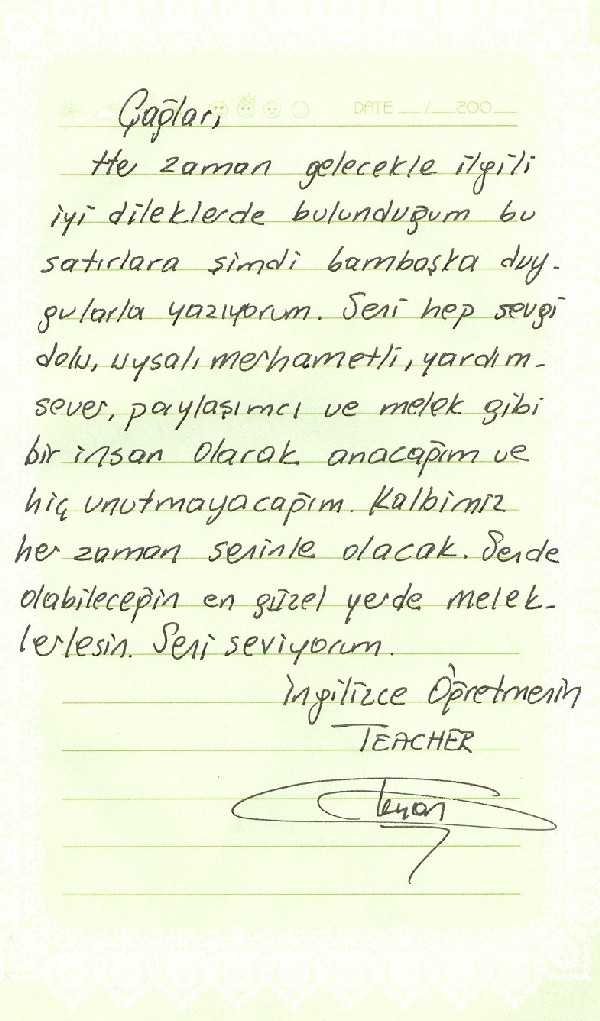 DATE __/__200__
Çağlar,
He zaman gelecekle ilgili
iyi dileklerde bulunduğum bu
satırlara şimdi bambaşka duy-
gularla yazıyorum. Seni hep sevgi
dolu, uysal, merhametli, yardım-
sever, paylaşımcı ve melek gibi
bir insan olarak anacağım ve
hiç unutmayacağım. Kalbimiz
her zaman seninle olacak. Sende
olabileceğin en güzel yerde melek-
lerlesin. Seni seviyorum.
İngilizce Öğretmenin
TEACHER